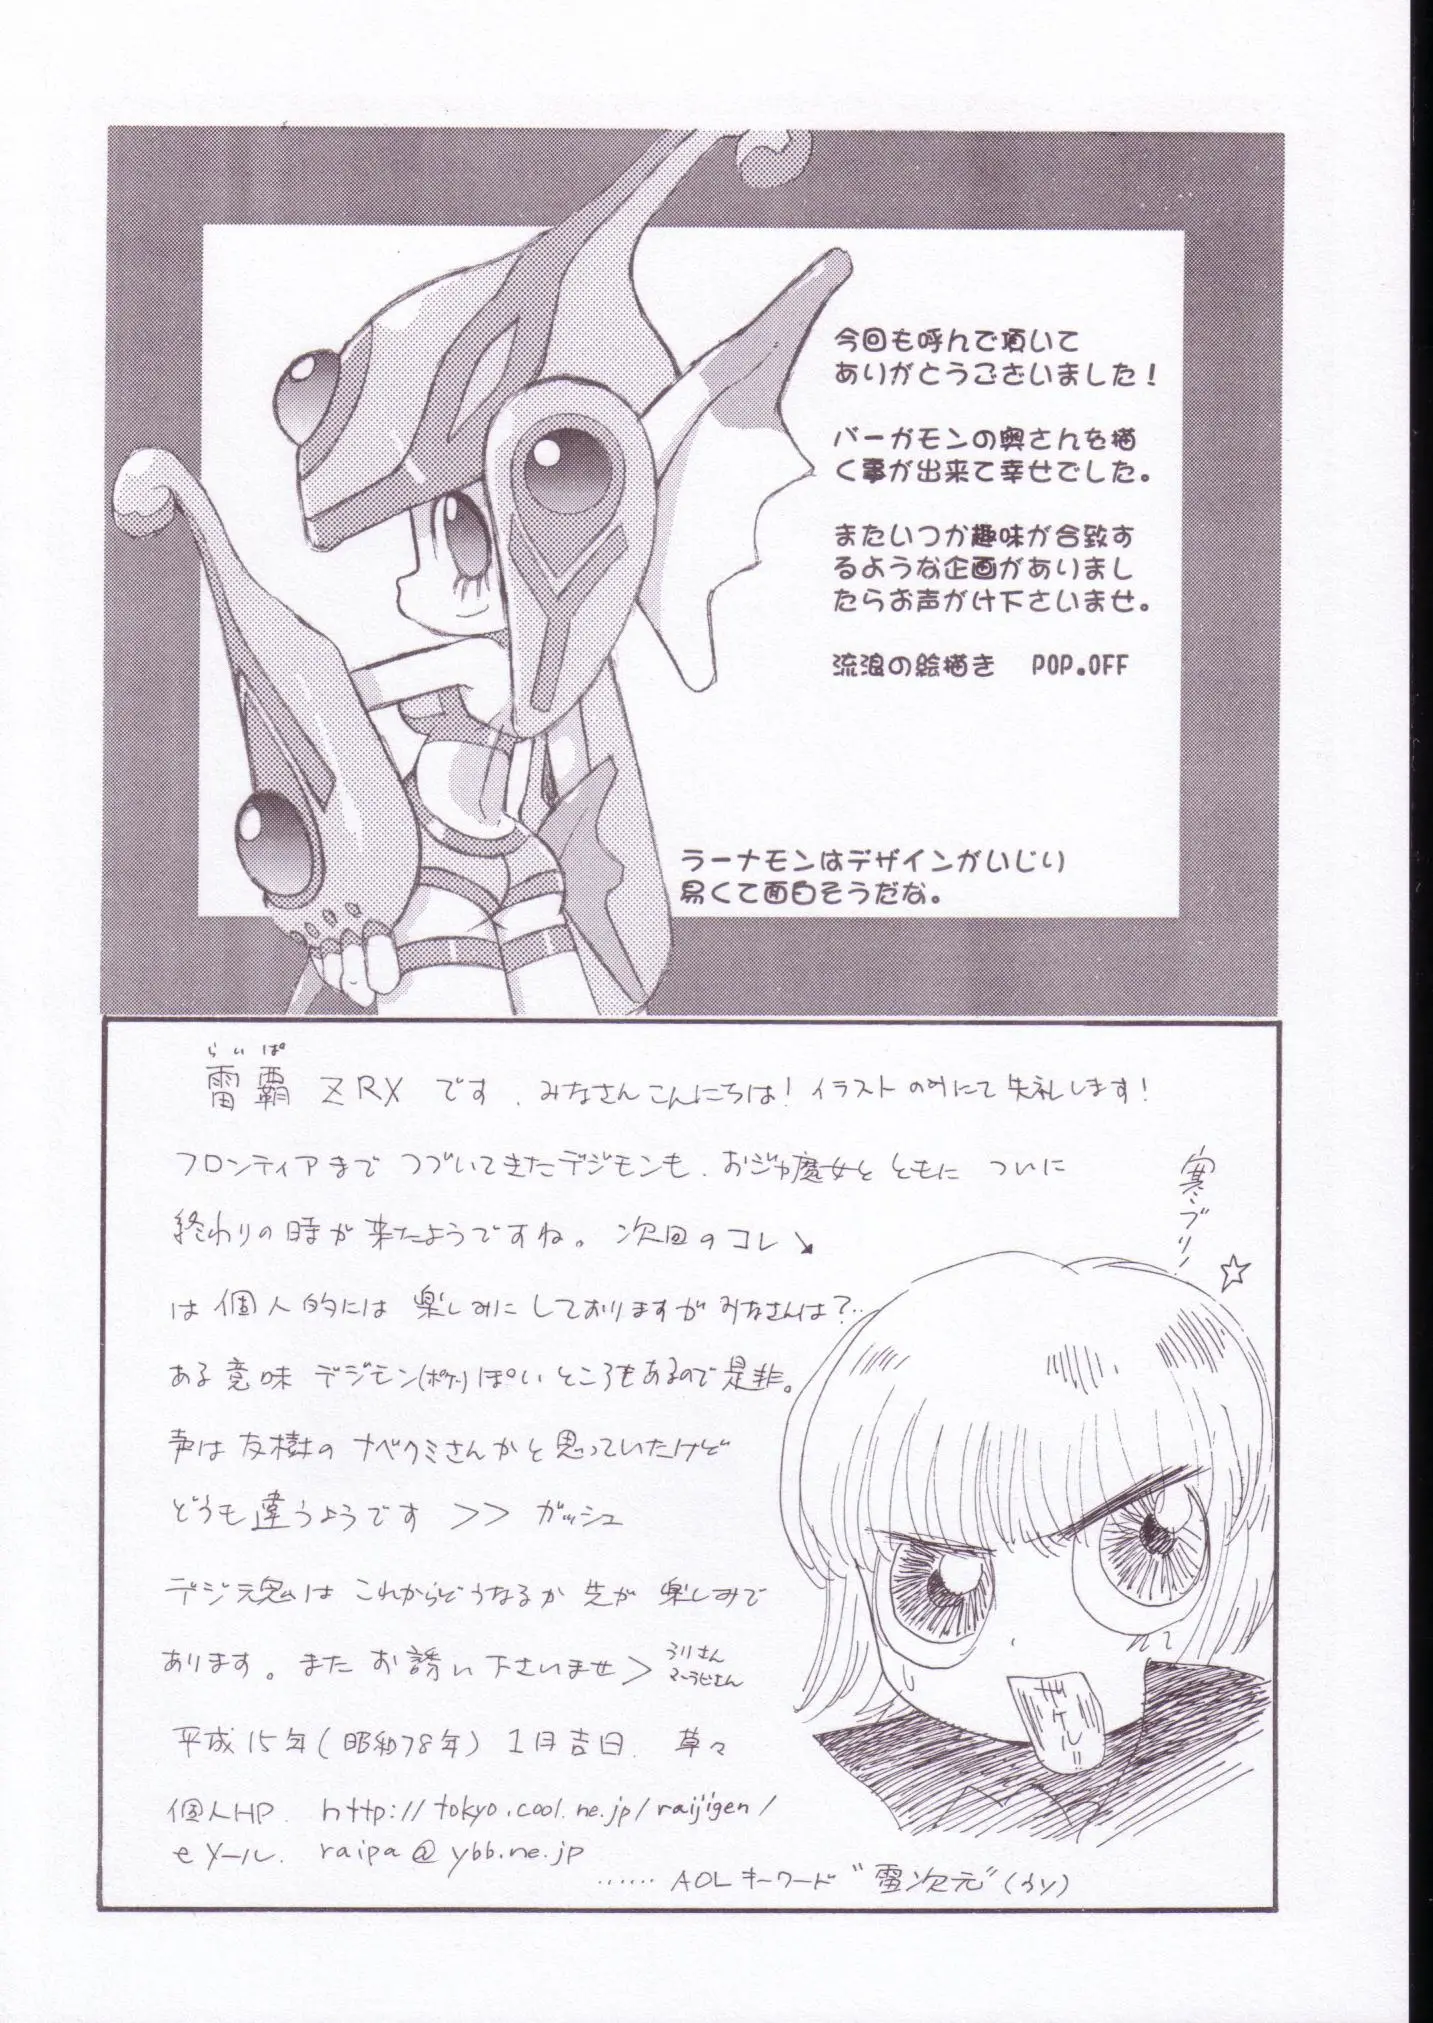 今回も呼んで頂いて
ありがとうございました!
バーガモンの奥さんを描
く事が出来て幸せでした。
またいつか趣味が合致す
るような企画がありまし
たらお声がけ下さいませ。
流浪の絵描き POP.OFF
ラーナモンはデザインがいじり
易くて面白そうだな。
らいぱ
雷覇 ZRX です、みなさんこんにちは! イラストのみにて失礼します!
フロンティアまで つづいてきたデジモンも、おジャ魔女と ともに ついに
終わりの時が 来たようですね。 次回のコレ↘
は個人的には 楽しみに しておりますが みなさんは?‥
ある意味 デジモン(ポケ)ぽい ところもあるので是非。
声は友樹の ナベクミさんかと思っていたけど
どうも違うようです >> ガッシュ
デジ魂は これからどうなるか 先が 楽しみで
あります。また お誘い下さいませ>
うりさん
マーラビさん
平成15年(昭和78年) 1月吉日. 草々
個人HP. http://tokyo.cool.ne.jp/raijigen/
eメール. raipa@ybb.ne.jp
…… AOLキーワード"雷次元"(うソ)
寒ブリ! ☆
ザケル!!